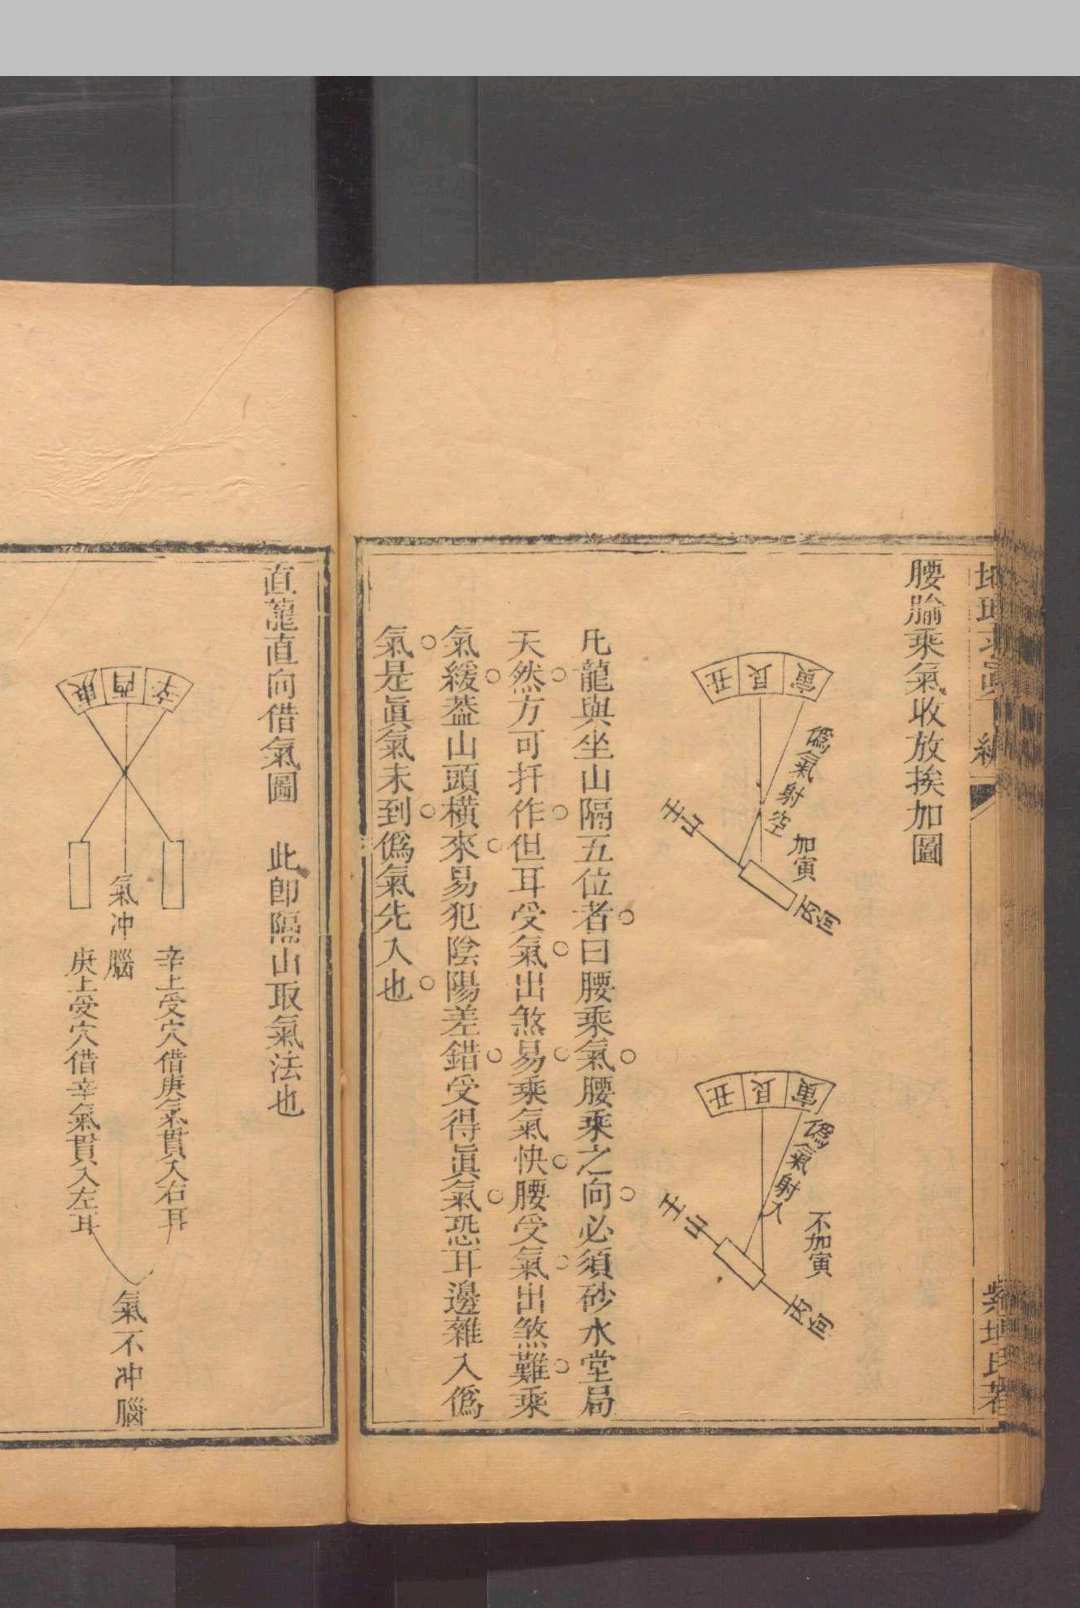 腰腧乘氣收放挨加圖
丑艮寅
僞氣射空
加寅
壬山
丙向
丑艮寅
僞氣射入
不加寅
壬山
丙向
凡龍與坐山隔五位者曰腰乘氣腰乘之向必須砂水堂局
天然方可扦作但耳受氣出煞易乘氣快腰受氣出煞難乘
氣緩葢山頭橫來易犯陰陽差錯受得眞氣恐耳邊雜入僞
氣是眞氣未到僞氣先入也
紫墟氏著
直龍直向借氣圖　此卽隔山取氣法也
庚酉辛
氣冲腦
辛上受穴借庚氣貫入右耳
庚上受穴借辛氣貫入左耳
氣不冲腦